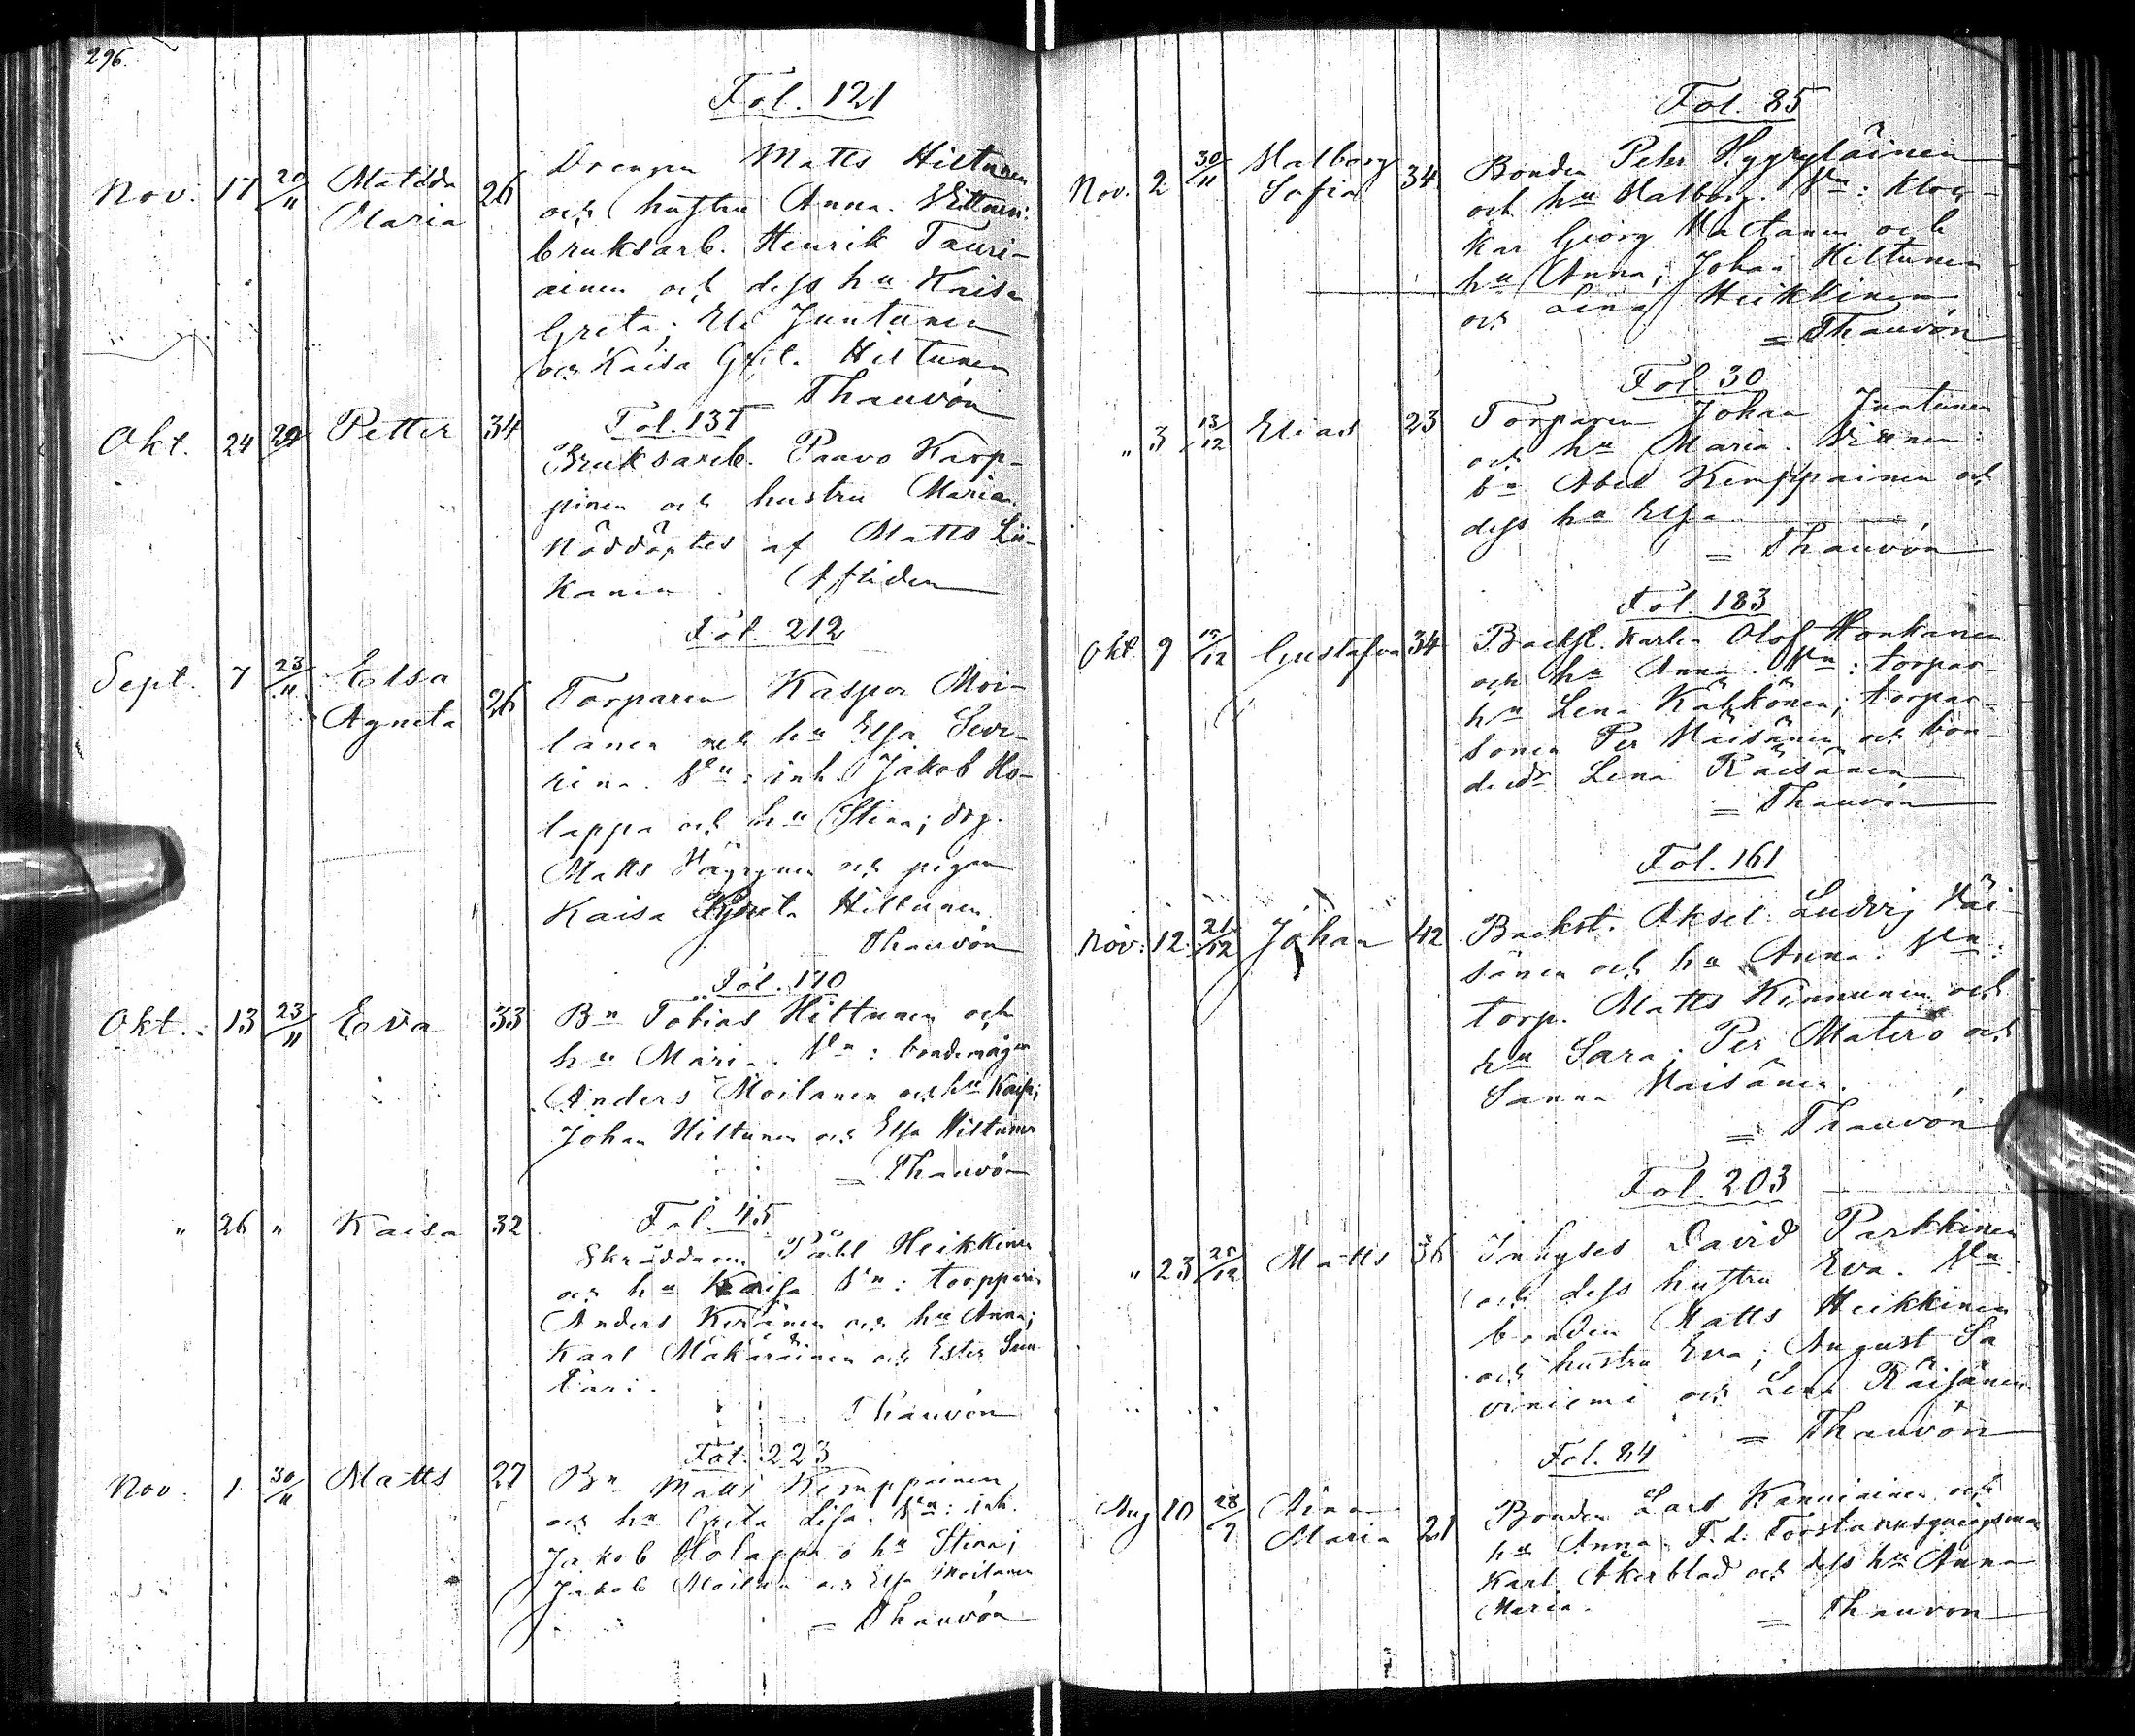 296.
Fol. 121
Nov. 17 20/11 Matilda Maria 26 Drengen Matts Hiltunen
och hustru Anna. Vittnen:
bruksarb. Henrik Tauri-
ainen och dess hu Kaisa
Greta; Juntunen
och Kaisa Hiltunen
Thauvón
Fol. 137
Okt. 24 Petter 34 Bruksarb. Paavo Karp-
pinen och hustru Maria.
Nöddöptes af Matts Lii-
kanen. Afliden
Fol. 212
Sept. 7 23/11 Elsa Agneta 26 Torparen Kasper Moi-
lanen och hu Elsa Seve-
rina. Vn: inh. Jakob Ho-
lappa och hu Stina; drg.
Matts Häyrynen och pigan
Kaisa Hiltunen
Thauvón
Fol. 170
Okt. 13 23/11 Eva 33 Bn Tobias Hiltunen och
hu Maria. Vn: bondemågen
Anders Moilanen och hu Kaisa;
Johan Hiltunen och Elsa Hiltunen
= Thauvón
Fol. 45
" 26 " Kaisa 32 Skräddaren Påhl Heikkinen
och hu Kaisa. Vn: torpparen
Anders Keränen och hu Anna;
Karl Mäkäräinen och Ester Sun-
tari.
Thauvón
Fol. 223
Nov. 1 30/11 Matts 27 Bn Matts Kemppainen
och hu Greta Lisa. Vn: inh.
Jakob Holappa o hu Stina;
Jakob Moilanen och Elsa Moilanen
= Thauvón
Fol. 85
Nov. 2 30/11 Valborg Sofia 34 Bonden Pehr Hyyryläinen
och hu Valborg. Vn: kloc-
kar Georg och
hu Anna; Johan Hiltunen
och Lena Heikkinen
= Thauvón
Fol. 30
" 3 13/12 Elias 23 Torparen Johan Juntunen
och hu Maria. Vittnen:
bn Abel Kemppainen och
dess hu Elsa.
= Thauvón
Fol. 183
Okt. 9 /12 Gustafva 34 Backst. karlen Olof Honkanen
och hu Anna. Vn: torpar-
hu Lena Kähkönen; torpar-
sonen Per Väisänen och bon-
dedr Lena Räisänen
= Thauvón
Fol. 161
Nov. 12 21/12 Johan 42 Backst. Aksel Ludvig Väi-
sänen och hu Anna. Vn:
torp. Matts Kinnunen och
hu Sara; Per Matero och
Sanna Väisänen.
= Thauvón
Fol. 203
" 23 /12 Matts 36 Inhyses David Parkkinen
och dess hustru Eva. Vn:
bonden Matts Heikkinen
och hustru Eva; August Sa-
viniemi och Lena Räisänen
= Thauvón
Fol. 84
Aug 10 28/9 Aina Maria 21 Bonden Lars Kanniainen och
hu Anna. F. d. Förstånusqneipsman
Karl Åkerblad och dess hu Anna
Maria.
= Thauvón